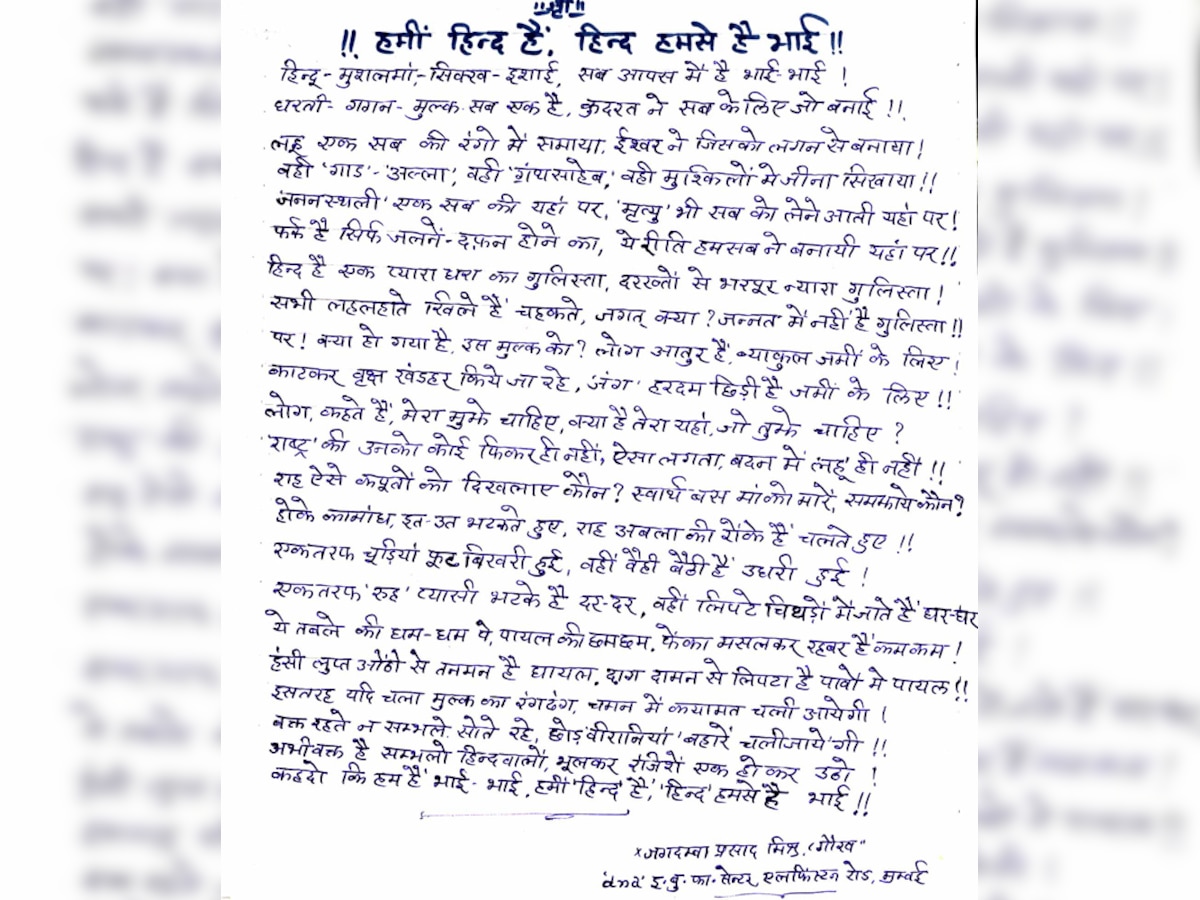 !! श्री !!
!! हमीं हिन्द हैं, हिन्द हमसे है भाई !!
हिन्दू - मुशलमां, - सिक्ख - इशाई, सब आपस में है भाई-भाई !
धरती - गगन - मुल्क सब एक है, कुदरत ने सब के लिए जो बनाई !!
लहू एक सब की रंगो में समाया, ईश्वर ने जिसको लगन से बनाया !
वही 'गाड' - 'अल्ला', वही 'ग्रंथसाहेब', वही मुश्किलों मे जीना सिखाया !!
'जननस्थली' एक सब की यहां पर, 'मृत्यु' भी सब को लेने आती यहां पर !
फर्क है सिर्फ जलनें - दफ़न होने का, ये रीति हमसब ने बनायी यहां पर !!
हिन्द है एक प्यारा धरा का गुलिस्ता, दरख्तों से भरपूर न्यारा गुलिस्ता !
सभी लहलहाते खिले हैं चहकते, जगत् क्या ? जन्नत में नहीं है गुलिस्ता !!
पर ! क्या हो गया है, इस मुल्क को ? लोग आतुर हैं, व्याकुल जमीं के लिए !
काटकर वृक्ष खंडहर किये जा रहे, 'जंग' हरदम छिड़ी है जमीं के लिए !!
लोग, कहते हैं, मेरा मुझे चाहिए, क्या है तेरा यहां, जो तुझे चाहिए ?
'राष्ट्र' की उनको कोई फिकर ही नहीं, ऐसा लगता, बदन में लहू ही नहीं !!
राह ऐसे कपूतों को दिखलाए कौन ? स्वार्थ बस मां को मारें, समझाये कौन ?
होके कामांध, इत-उत भटकते हुए, राह अबला की रोंके हैं चलते हुए !!
एकतरफ चूड़ियां फूट बिखरी हुई, वहीं वैही बैठी है उधरी हुई !
एकतरफ 'रुह' प्यासी भटके है दर-दर, वहीं लिपटे चिथड़ों में जाते हैं घर-घर
ये तबले की धाम-धाम पे, पायल की छमछम, फेंका मसलकर रहबर हैं कमकम !
हंसी लुप्त ओंठो से तनमन है घायल, दाग दामन से लिपटा है पावों मे पायल !!
इसतरह यदि चला मुल्क का रंगढंग, चमन में कयामत चली आयेगी !
वक्त रहते न सम्भले, सोते रहे, छोड़ वीरानियां 'बहारें चलीजाये'गी !!
अभीवक्त है सम्भलो हिन्दवालों, भूलकर रंजिशें एक हो कर उठो !
कहदो कि हम हैं भाई - भाई, हमीं 'हिन्द' हैं, 'हिन्द' हमसे है भाई !!
x जगदम्बा प्रसाद मिश्र, "गौरव"
'dna' इ. बु. फा. सेन्टर, एलफिंस्टन रोड, मुम्बई